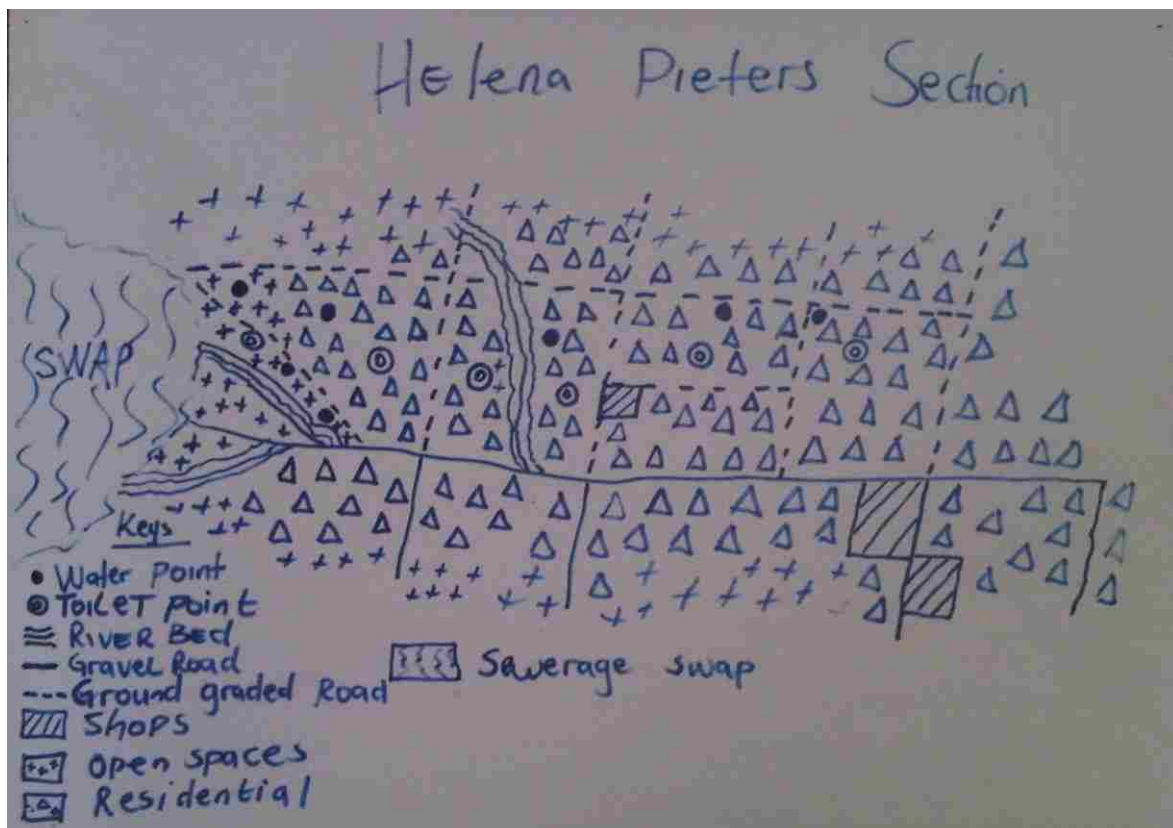 Helena Pieters Section
SWAP
Keys
Water Point
TOILET point
RIVER Bed
Gravel Road
Ground graded Road
Shops
open spaces
Residential
Sewerage swap